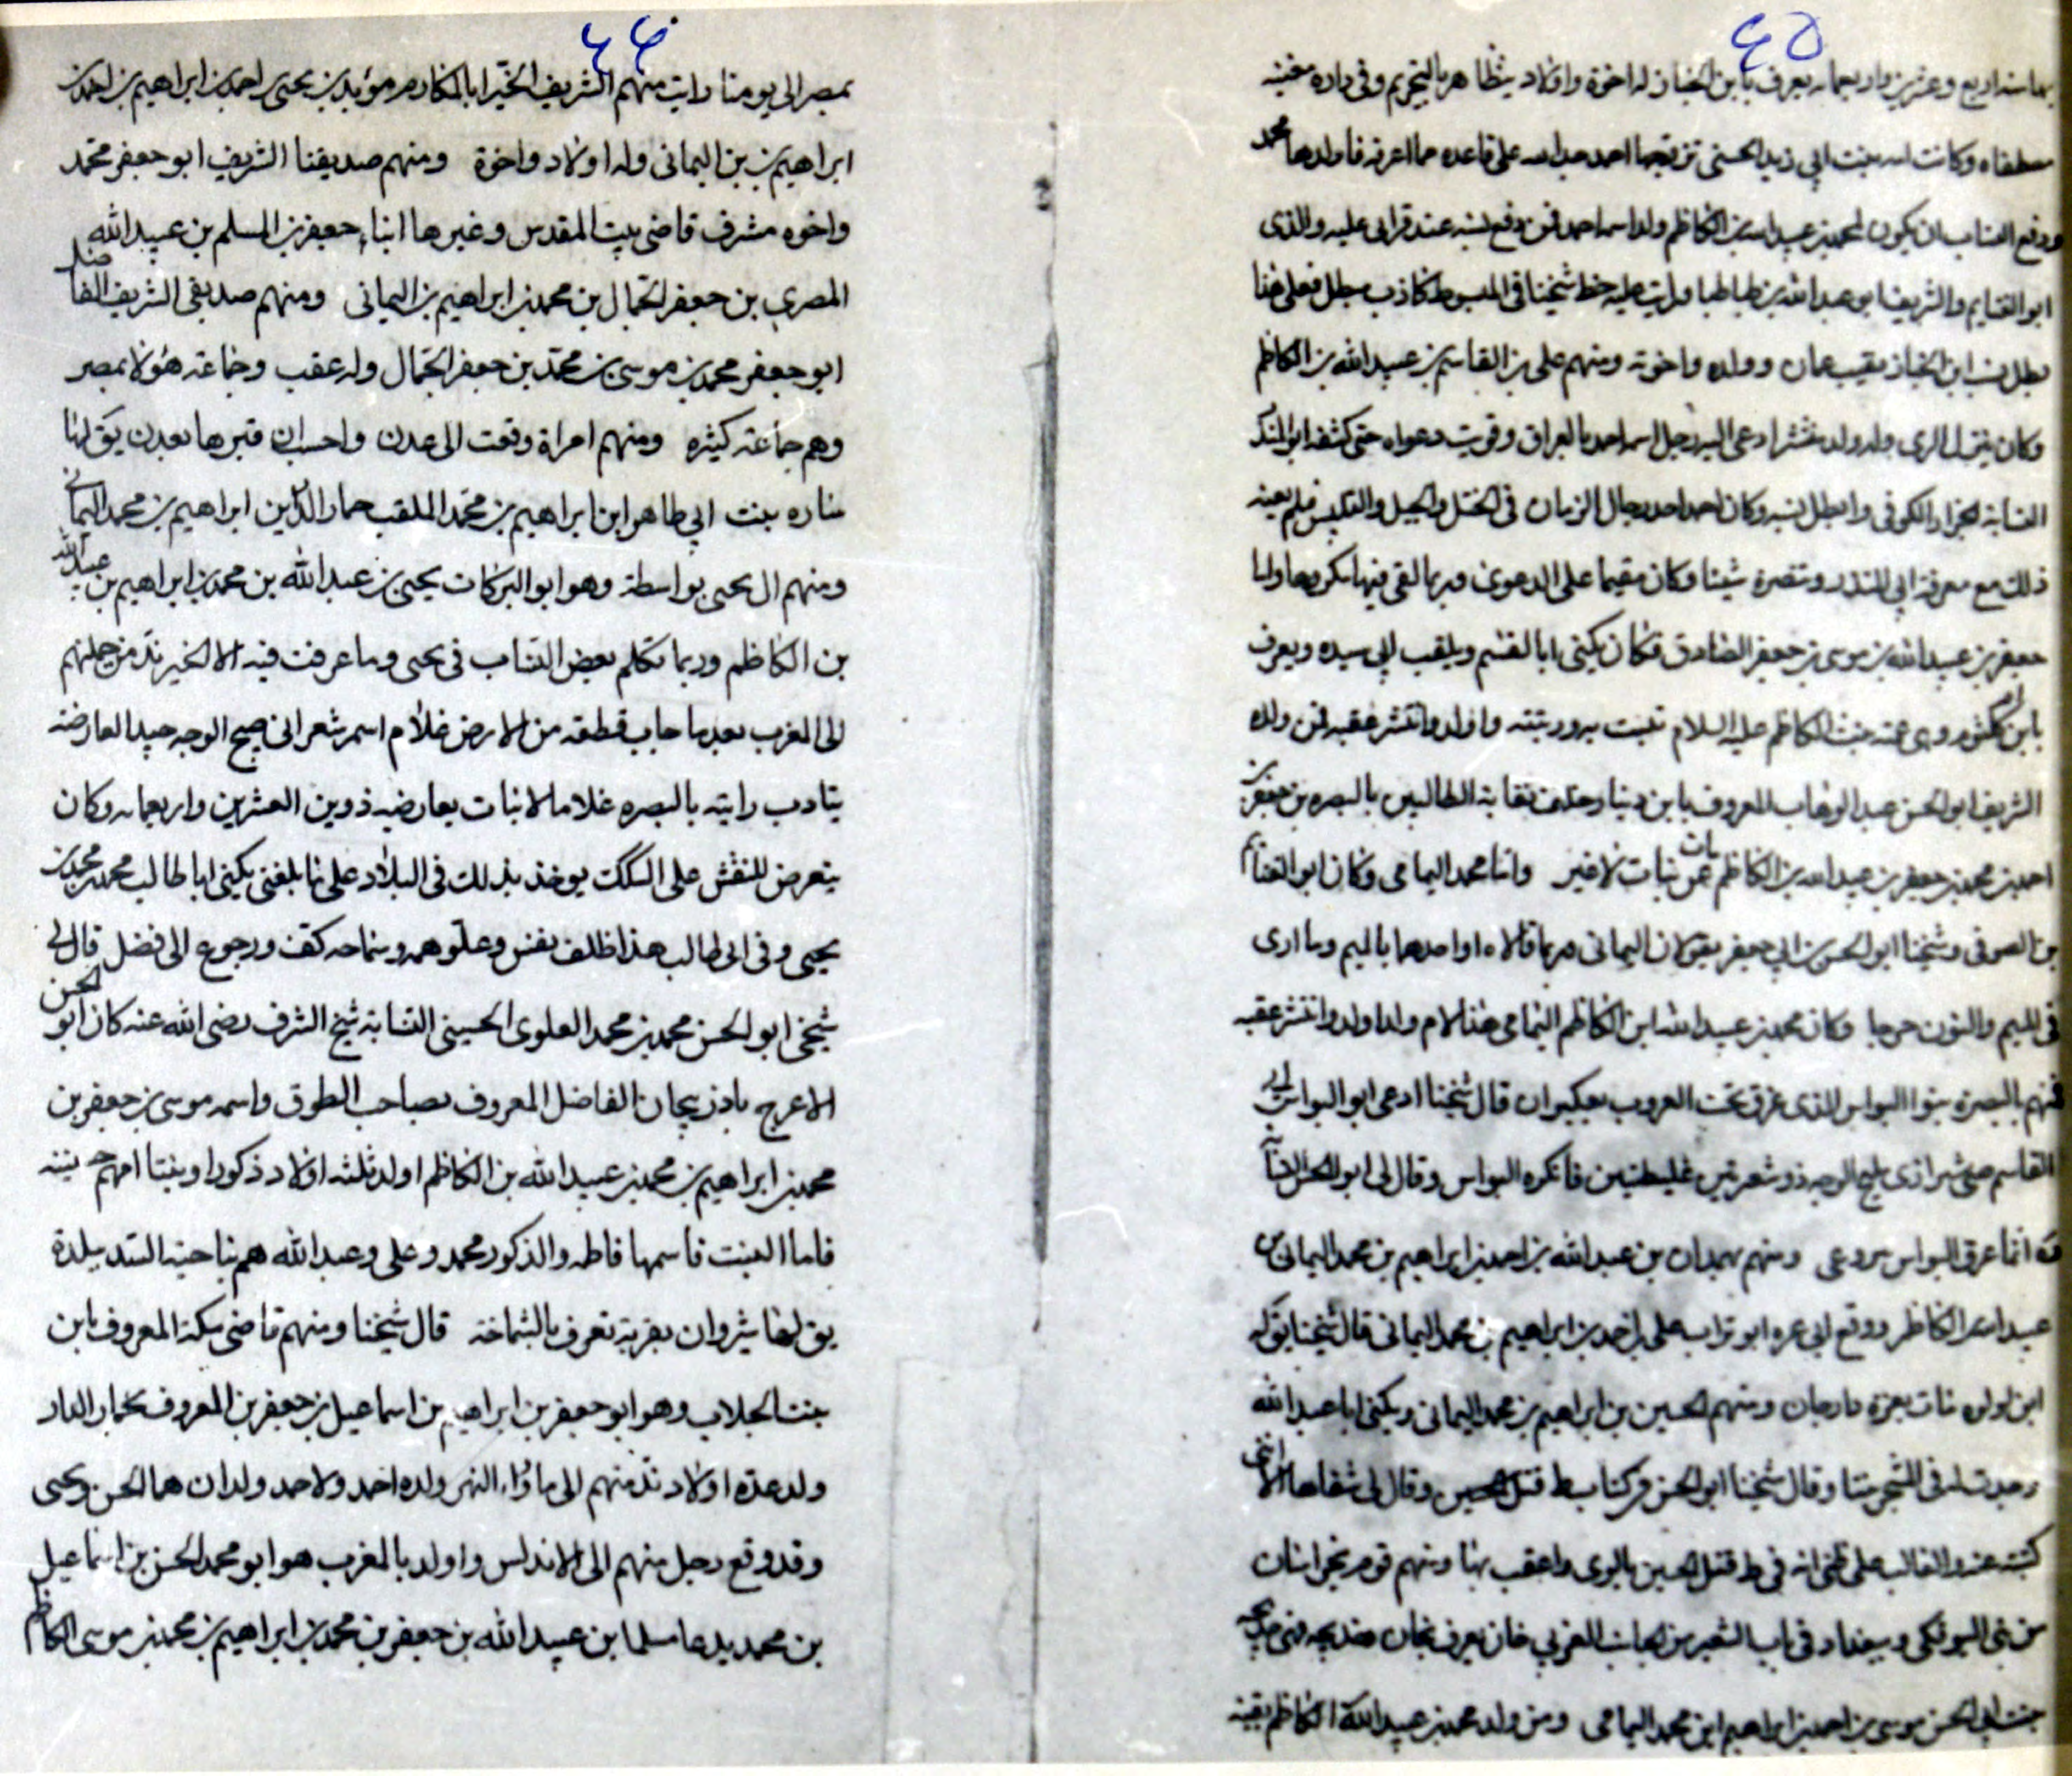 ٤٥
بها سنة اربع وعشرين واربعمائه يعرف بابن الخباز له اخوة واولاد يتظاهر بالتجريم وفى داره مغنيه
مصطفاه وكانت اسه بنت ابي زيد الحسنى تزوجها احمد عبد الله على قاعده ما اعرفه فاولدها محمد
ودفع النساب ان يكون لمحمد بن عبيد الله بن الكاظم ولد اسمه احمد فمن دفع نسبه عند قرابى عليه والدى
ابو الغنايم والشريف ابو عبد الله بن طباطبا ورايت عليه خط شيخنا فى المبسوط كاذب مبطل فعلى هذا
بطل نسب ابن الخباز نقيب عمان وولده واخوته ومنهم على بن القاسم بن عبيد الله بن الكاظم
وكان ينزل الرى وله ولد منتشر ادعى اليه رجل اسمه احمد بالعراق وقويت دعواه حتى كشفه ابو المنذر
النسابة الخزاز الكوفى وابطل نسبه وكان احمد احد رجال الزمان فى الختل والحيل والتلبيس فلم يعنه
ذلك مع معرفة ابي المنذر وتنصره شيئا وكان مقيما على الدعوى وربما لقى فيها مكروها واما
جعفر بن عبيد الله بن موسى بن جعفر الصادق فكان يكنى ابا القسم ويلقب ابي سيده ويعرف
بابن ام كلثوم وهى عمته بنت الكاظم عليه السلام تبنت به وربته واولد وانتشر عقبه فمن ولده
الشريف ابو الحسن عبد الوهاب المعروف بابن دينار خلف نقابة الطالبيين بالبصره بن جعفر بن
احمد بن محمد بن جعفر بن عبيد الله بن الكاظم مات عن بنات لا غير واما محمد اليمامى وكان ابو الغنايم
بن الصوفى وشيخنا ابو الحسن بن ابي جعفر يقولان اليمانى وربما قالاه او احدهما بالميم وما ارى
فى الميم والنون حرجا وكان محمد بن عبيد الله ابن الكاظم اليمامى هذا لام ولد اولد وانتشر عقبه
فمنهم بالبصرة بنوا البواس الذى غرق تحت العروب بعكبران قال شيخنا ادعى ابو البواس ان
القاسم صبى شرازى مليح الوجه ذو شعرتين غليظتين فانكره البواس وقال لى ابو الحسن النسا
بة انما عرق البواس بروعى ومنهم بهمدان بن عبد الله بن احمد بن ابراهيم بن محمد اليمانى بن
عبيد الله الكاظم ووقع الى عره ابو تراب على بن احمد بن ابراهيم بن محمد اليمانى قال شيخنا يق له
ابن لولوه مات بعزة بارجان ومنهم الحسين بن ابراهيم بن محمد اليمانى ويكنى ابا عبد الله
وجدت له فى المشجر بنتا وقال شيخنا ابو الحسن فى كتابه ط قتل الحسين وقال لى شفاها الا انى
كتبته عنه والغالب على ظنى انه فى ط قتل الحسين بالرى واعقب بها ومنهم قوم بخراسان
من بنى اليونكى وببغداد فى باب الشعير من الجانب الغربى خان يعرف بخان خديجه وهى خديجه
بنت ابى الحسن موسى بن احمد بن ابراهيم ابن محمد اليمامى ومن ولد محمد بن عبيد الله الكاظم بقيه
٤٦
بمصر الى يومنا رايت منهم الشريف الخير ابا المكارم مؤيد بن يحيى بن احمد بن ابراهيم بن احمد بن
ابراهيم بن اليمانى وله اولاد واخوة ومنهم صديقنا الشريف ابو جعفر محمد
واخوه مشرف قاضى بيت المقدس وغيرها ابنا جعفر بن المسلم بن عبيد الله
المصرى بن جعفر الجمال بن محمد بن ابراهيم بن اليمانى ومنهم صديقى الشريف الفاضل
ابو جعفر محمد بن موسى بن محمد بن جعفر الجمال وله عقب وجماعة هؤلا بمصر
وهم جماعة كثيره ومنهم امراة وقعت الى عدن واحسب ان قبرها بعدن يق لها
ساره بنت ابي طاهر ابن ابراهيم بن محمد الملقب حمار الدارين ابراهيم بن محمد اليمانى
ومنهم ال يحيى بواسطة وهو ابو البركات يحيى بن عبد الله بن محمد بن ابراهيم بن عبيد الله
بن الكاظم وربما تكلم بعض النساب فى يحيى وما عرفت فيه الا الخير ند من جملتهم
الى المغرب بعد ما جاب قطعة من الارض غلام اسمر شعرانى صبيح الوجه جيد العارضه
يتادب رايته بالبصره غلاما لا نبات بعارضيه ذوين العشرين واربعمائه وكان
يتعرض للنقش على السكك يوخذ بذلك فى البلاد على ما بلغنى يكنى ابا طالب محمد بن محمد بن
يحيى وفى ابى طالب هذا ظلف نفس وعلو همه وسماحه كف ورجوع الى فضل قال لى
شيخى ابو الحسن محمد بن محمد العلوى الحسينى النسابة شيخ الشرف رضى الله عنه كان ابو الحسن
الاعرج باذربيجان الفاضل المعروف بصاحب الطوق واسمه موسى بن جعفر بن
محمد بن ابراهيم بن محمد بن عبيد الله بن الكاظم اولد ثلثه اولاد ذكورا وبنتا امهم حسينيه
فاما البنت فاسمها فاطمه والذكور محمد وعلى وعبد الله هم بناحية السند ببلدة
يق لها شروان بقرية تعرف بالشماخة قال شيخنا ومنهم قاضى مكة المعروف بابن
بنت الجلاب وهو ابو جعفر بن ابراهيم بن اسماعيل بن جعفر بن المعروف بحمار الدار
ولد عدة اولاد ند منهم الى ما وراء النهر ولده احمد ولاحمد ولدان هما الحسن ويحيى
وقد وقع رجل منهم الى الاندلس واولد بالمغرب هو ابو محمد الحسن بن اسماعيل
بن محمد يدعا مسلما بن عبيد الله بن جعفر بن محمد بن ابراهيم بن محمد بن موسى الكاظم